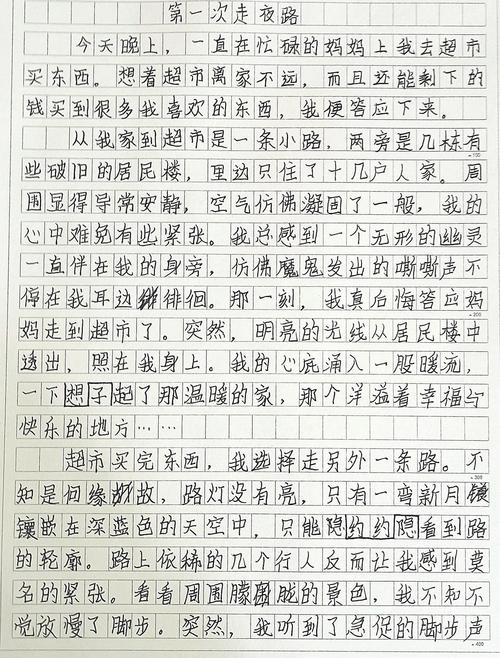 第一次走夜路
今天晚上，一直在忙碌的妈妈上我去超市
买东西。想着超市离家不远，而且还能剩下的
钱买到很多我喜欢的东西，我便答应下来。
从我家到超市是一条小路，两旁是几栋有
些破旧的居民楼，里边只住了十几户人家。周
围显得异常安静，空气仿佛凝固了一般，我的
心中难免有些紧张。我总感到一个无形的幽灵
一直伴在我的身旁，仿佛魔鬼发出的嘶嘶声不
停在我耳边徘徊。那一刻，我真后悔答应妈
妈走到超市了。突然，明亮的光线从居民楼中
透出，照在我身上。我的心底涌入一股暖流，
一下想子起了那温暖的家，那个洋溢着幸福与
快乐的地方……
超市买完东西，我选择走另外一条路。不
知是何缘故，路灯没有亮，只有一弯新月
镶嵌在深蓝色的天空中，只能隐约约隐看到路
的轮廓。路上依稀的几个行人反而让我感到莫
名的紧张。看看周围朦胧的景色，我不知不
觉放慢了脚步。突然，我听到了急促的脚步声